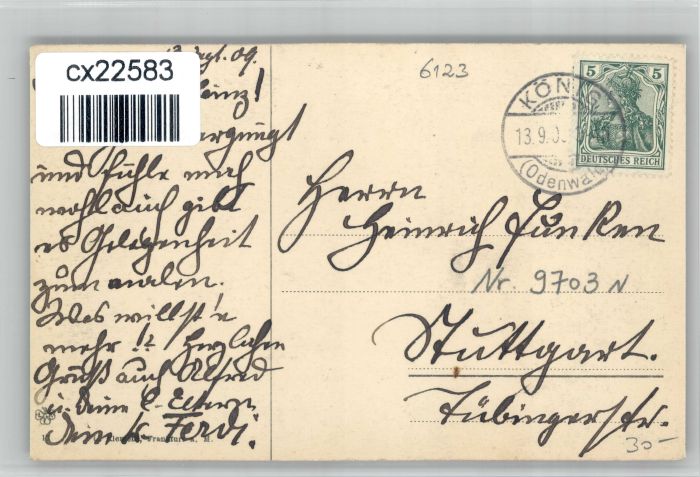 cx22583
Sept. 09.
Heinz!
und fühle mich
wohl auch gibt
es Gelegenheit
zum malen.
Was willst'e
mehr!? Herzlichen
Gruß auch Alfred
u. Deine l. Eltern.
Dein Ferdi.
Frankfurt a. M.
6123
KÖNIG
13.9.0
(Odenwald)
5 5
DEUTSCHES REICH
Herrn
Heinrich Funken
Nr. 9703 N
Stuttgart.
Tübingerstr.
30-